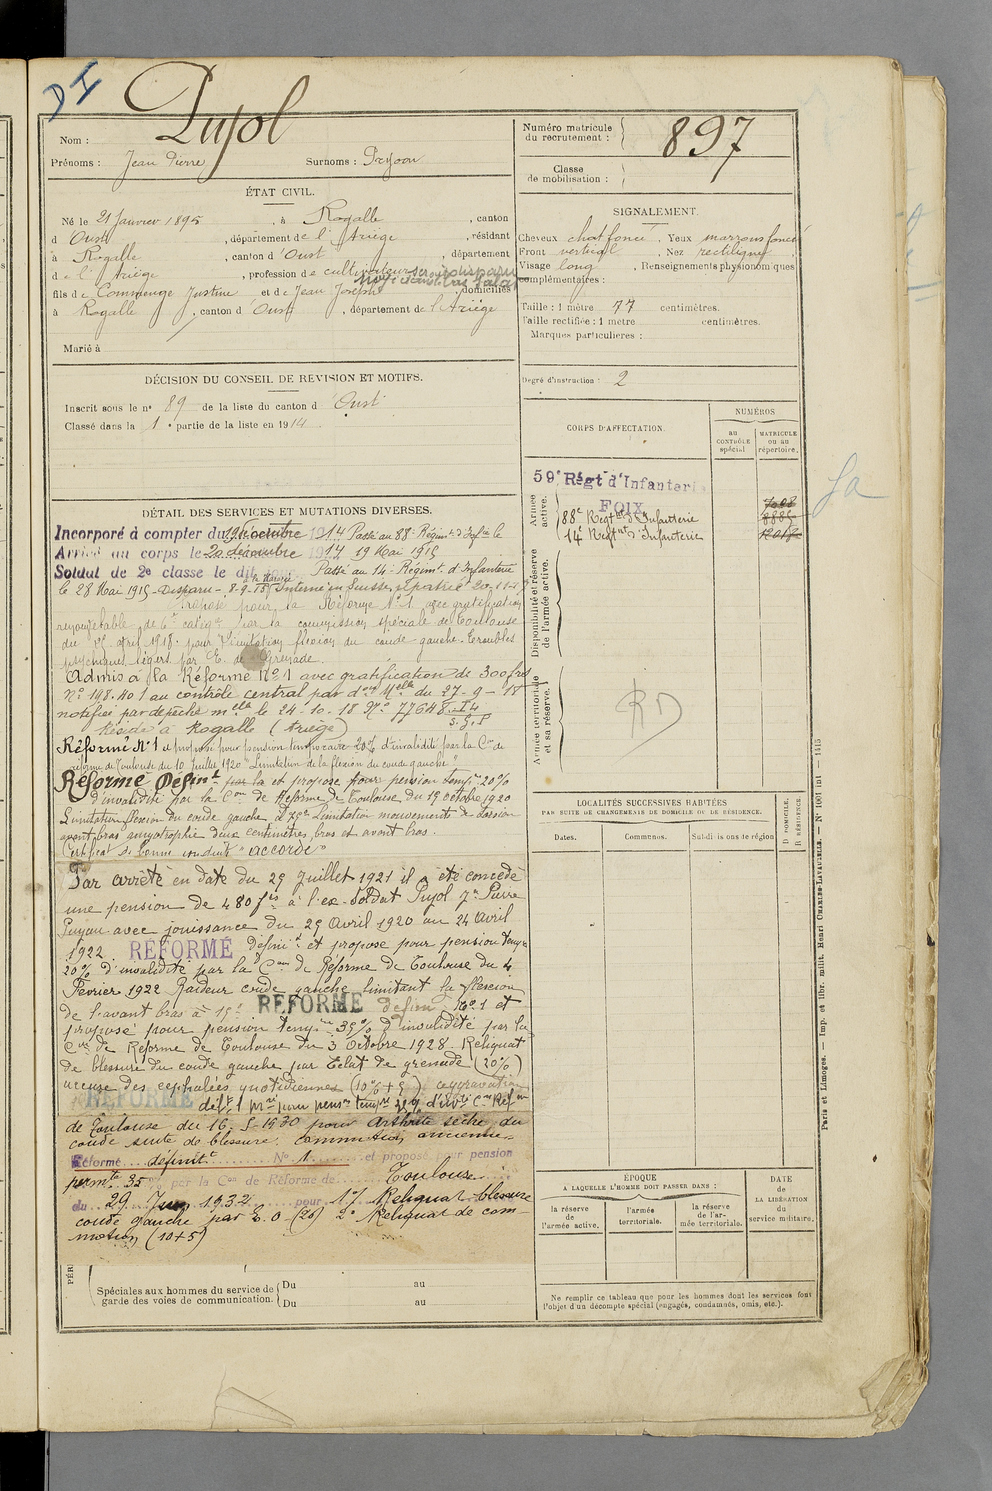 Pujol
Nom :
Prénoms : Jean Pierre Surnoms :
Numéro matricule du recrutement : 897
Classe de mobilisation :
ÉTAT CIVIL.
Né le 21 Janvier 1895, à Rogalle, canton
d'Oust, département de l'Ariège, résidant
à Rogalle, canton d'Oust, département
de l'Ariège, profession de cultivateur
fils de Commenge Justine et de Jean Joseph domiciliés
à Rogalle, canton d'Oust, département de l'Ariège
Marié à
SIGNALEMENT.
Cheveux chat foncé. Yeux marrons foncé
Front vertical, Nez rectiligne
Visage long, Renseignements physionomiques
complémentaires :
Taille : 1 mètre 77 centimètres.
Taille rectifiée : 1 mètre centimètres.
Marques particulières :
Degré d'instruction : 2
DÉCISION DU CONSEIL DE REVISION ET MOTIFS.
Inscrit sous le nº 89 de la liste du canton d Oust
Classé dans la 1e partie de la liste en 1914
CORPS D'AFFECTATION.
NUMÉROS
au CONTRÔLE spécial
MATRICULE OU AU répertoire.
Armée active.
59e Régt d'Infanterie
FOIX
88e Régt d'Infanterie
14e Régt d'Infanterie
Disponibilité et réserve de l'armée active.
Armée territoriale et sa réserve.
RD
DÉTAIL DES SERVICES ET MUTATIONS DIVERSES.
Incorporé à compter du 1914 Passé au 88e Régiment d'Infie le
Arrivé au corps le 19 Mai 1915
Soldat de 2e classe le dit jour. Passé au 14e Régimt. d'Infanterie
le 28 Mai 1915 - Disparu - Interné en Suisse,
Proposé pour la Réforme Nº 1 avec gratification
renouvelable de 6e catégie par la commission spéciale de Toulouse
du avril 1918 pour limitation flexion du coude gauche. Troubles
psychiques légers par E. de Grenade.
Admis à la Réforme Nº 1 avec gratification de 300 frs
Nº 148.401 au contrôle central par don Mlle du 27-9-18
notifiée par dépêche mlle le 24-10-18 Nº
Réside à Rogalle (Ariège)
Réformé Nº 1 et proposé pour pension temporaire 20% d'invalidité par la Con de
réforme de Toulouse du 10 Juillet 1920 "Limitation de la flexion du coude gauche"
Réformé Défint et proposé pour pension tempre 20%
d'invalidité par la Con de Réforme de Toulouse du 19 octobre 1920
Limitation flexion du coude gauche à Limitation mouvements de torsion
avant-bras amyotrophie deux centimètres bras et avant bras.
Certificat de bonne conduite "accordé"
Par arrêté en date du 29 Juillet 1921 il a été concédé
une pension de 480 frs à l'ex-soldat Pujol Jn Pierre
avec jouissance du 25 Avril 1920 au 24 Avril
1922. RÉFORMÉ définit et proposé pour pension tempre
20% d'invalidité par la Con de Réforme de Toulouse du 4
Fevrier 1922 Raideur coude gauche limitant la flexion
de l'avant bras à RÉFORMÉ défin. Nº 1 et
proposé pour pension tempre 35% d'invalidité par la
Con de Réforme de Toulouse du 3 Octobre 1928. Reliquat
de blessure du coude gauche par Eclat de grenade (20%)
accuse des cephalées quotidiennes (10% + 5) aggravation
RÉFORMÉ déft 1 pour pensn tempre d'invté Con Réfme
de Toulouse du 16. 5-1930 pour Arthrite sèche du
coude suite de blessure. Commotion ancienne.
Réformé définitt Nº 1 et proposé pour pension
permte 35% par la Con de Réforme de Toulouse
du 29 Juin 1932 pour 1º/ Reliquat blessure
coude gauche par E.O (20) 2º Reliquat de com-
motion (10+5)
LOCALITÉS SUCCESSIVES HABITÉES
PAR SUITE DE CHANGEMENTS DE DOMICILE OU DE RÉSIDENCE.
Dates. Communes. Subdivisions de région
D DOMICILE.
R RÉSIDENCE.
ÉPOQUE
A LAQUELLE L'HOMME DOIT PASSER DANS :
la réserve de l'armée active.
l'armée territoriale.
la réserve de l'armée territoriale.
DATE de LA LIBÉRATION du service militaire.
Spéciales aux hommes du service de garde des voies de communication.
Du au
Du au
Ne remplir ce tableau que pour les hommes dont les services font
l'objet d'un décompte spécial (engagés, condamnés, omis, etc.).
Paris et Limoges. — Imp. et libr. milit. Henri CHARLES-LAVAUZELLE. — Nº 1001 int — 1415